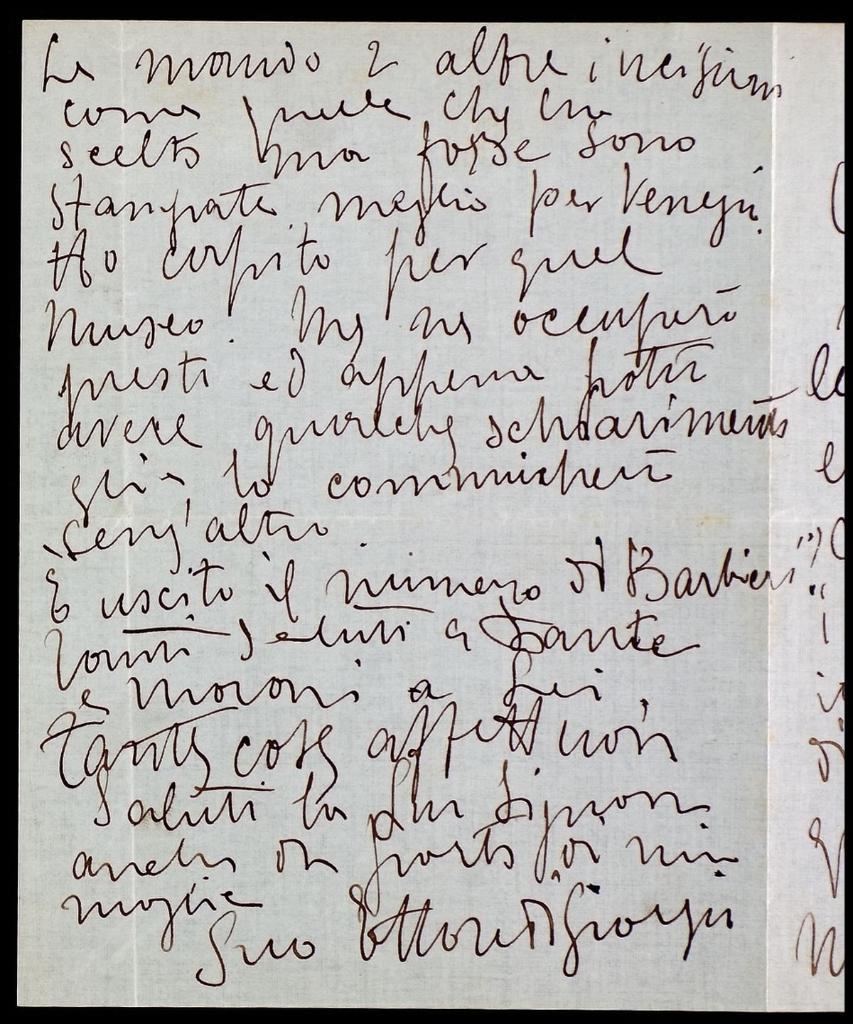 Le mando 2 altre incisioni
come quelle che ha
scelto ma forse sono
stampate meglio per Venezia.
Ho capito per quel
Museo. Me ne occuperò
presto ed appena potrò
avere qualche schiarimento
glie lo comunicherò
senz'altro
È uscito il numero di Barbieri?
Tanti saluti a Dante
e Moroni a Lei
tante cose affettuose
Saluti la Sua Signora
anche da parte di mia
moglie
Suo Ettore di Giorgio